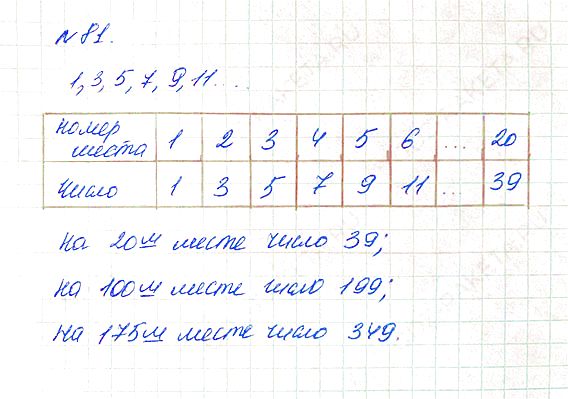 №81.
1, 3, 5, 7, 9, 11....
номер места 1 2 3 4 5 6 ... 20
число 1 3 5 7 9 11 ... 39
на 20м месте число 39;
на 100м месте число 199;
на 175м месте число 349.